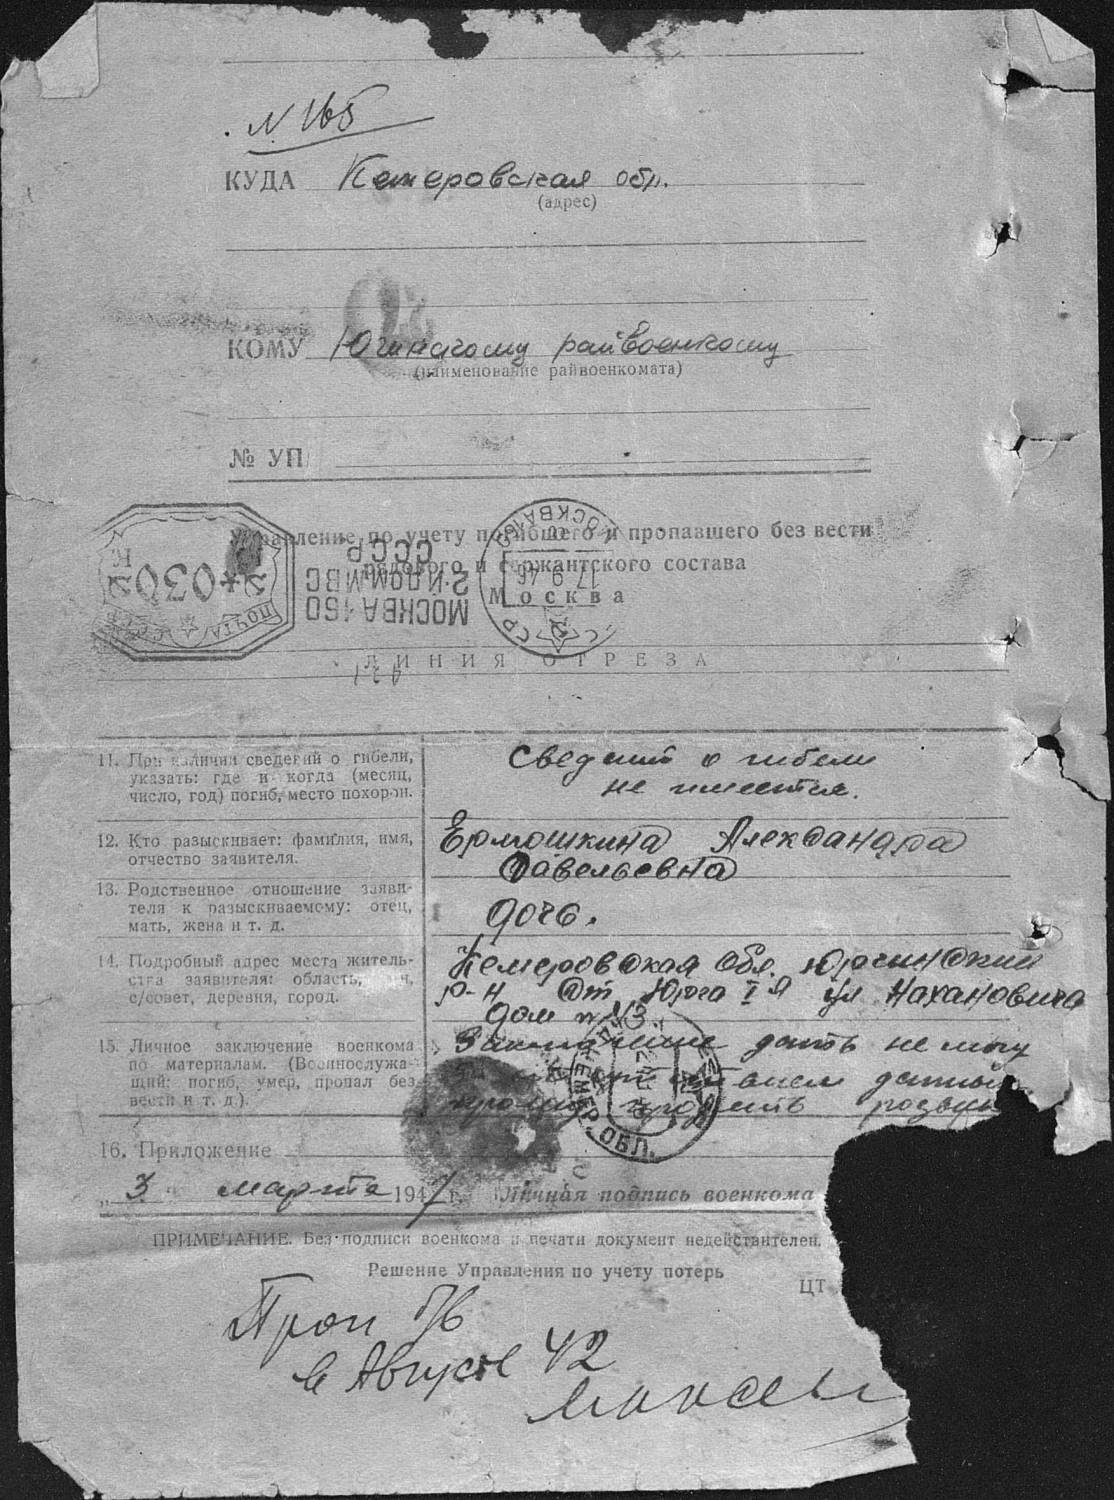 N 165
КУДА Кемеровская обл.
(адрес)
КОМУ Югинскому райвоенкому
(наименование райвоенкомата)
№ УП
Управление по учету погибшего и пропавшего без вести
рядового и сержантского состава
Москва
ПОЧТА СССР
*030
К
МОСКВА 160
2-й ДОМ МВС
СССР
МОСКВА
17 9 46
СССР
ЛИНИЯ ОТРЕЗА
11. При наличии сведений о гибели,
указать: где и когда (месяц,
число, год) погиб, место похорон.
Сведений о гибели
не имеется.
12. Кто разыскивает: фамилия, имя,
отчество заявителя.
Ермошкина Александра
Савельевна
13. Родственное отношение заяви-
теля к разыскиваемому: отец,
мать, жена и т. д.
дочь.
14. Подробный адрес места житель-
ства заявителя: область,
с/совет, деревня, город.
Кемеровская обл. Юргинский
р-н ст Юрга I я ул Нахановича
дом n 43
15. Личное заключение военкома
по материалам. (Военнослужа-
щий: погиб, умер, пропал без
вести и т. д.).
Заключение дать не могу
данных
прошу
КЕМЕР. ОБЛ.
16. Приложение
„3" марта 1947 г. Личная подпись военкома
ПРИМЕЧАНИЕ. Без подписи военкома и печати документ недействителен.
Решение Управления по учету потерь
ЦТ
Проп б/в
в Августе 42